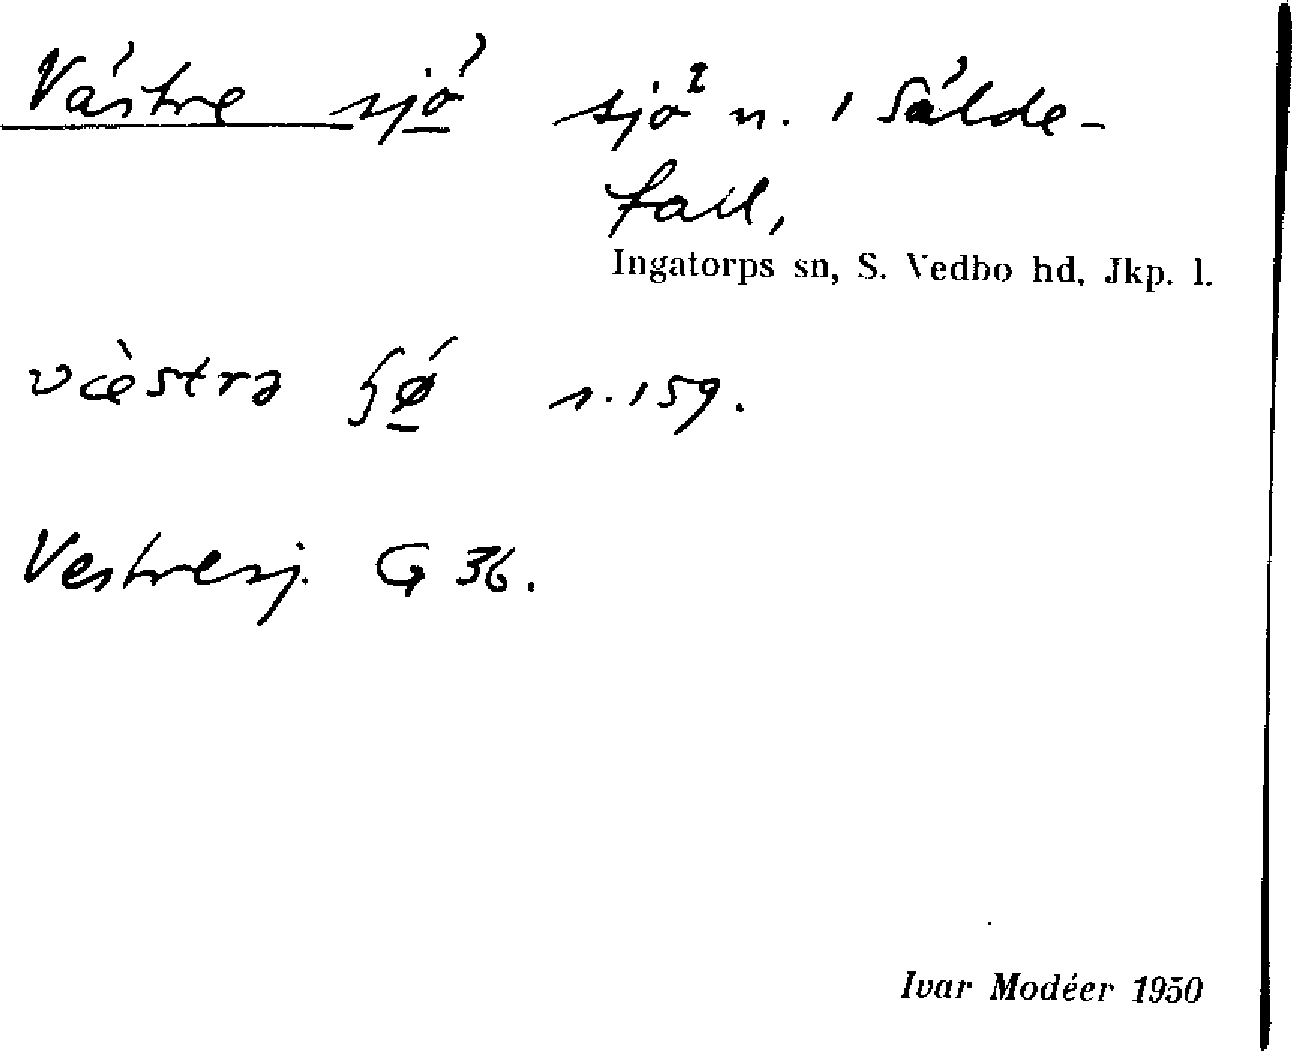 Västre sjö sjö n. i Sälde-
fall,
Ingatorps sn, S. Vedbo hd, Jkp. l.
væ̀stra ʃǿ n. 159.
Vestresj. G 36.
Ivar Modéer 1950